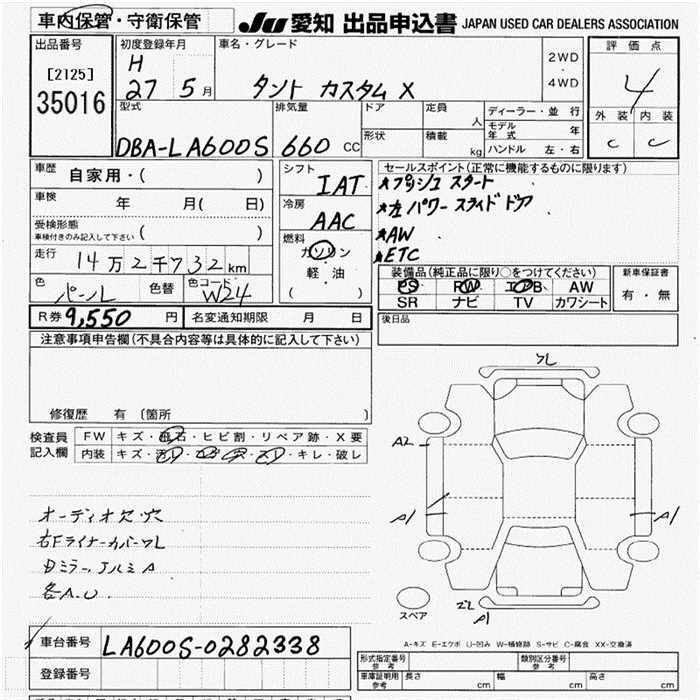 車内保管・守衛保管
JU 愛知 出品申込書 JAPAN USED CAR DEALERS ASSOCIATION
出品番号
[2125]
35016
初度登録年月
H
27 5月
車名・グレード
タント カスタム X
2WD
・
4WD
評価点
4
外装 内装
C C
型式
DBA-LA600S
排気量
660 CC
ドア
形状
定員
人
積載
kg
ディーラー・並行
モデル年式 年
ハンドル 左・右
車歴
自家用・( )
車検
年 月( 日)
受検形態
車検付きのみ記入して下さい ( )
走行
14万2千732km
色
パール
色替
色コード
W24
シフト
IAT
冷房
AAC
燃料
ガソリン
軽・油
( )
セールスポイント(正常に機能するものに限ります)
★プッシュスタート
★左パワースライドドア
★AW
★ETC
装備品(純正品に限り○をつけてください)
PS PW エアB AW
SR ナビ TV カワシート
新車保証書
有・無
R券 9,550 円
名変通知期限 月 日
後日品
注意事項申告欄(不具合内容等は具体的に記入して下さい)
修復歴 有 〔箇所 〕
検査員記入欄
FW キズ・飛石・ヒビ割・リペア跡・X要
内装 キズ・汚レ・コゲ・穴・スレ・キレ・破レ
オーディオ欠・穴
右Fライナーカバーワレ
各A.U.
ワレ
A2
A1
A1
A1
スペア
A-キズ E-エクボ U-凹み W-補修跡 S-サビ C-腐食 XX-交換済
車台番号
LA600S-0282338
登録番号
形式指定番号
参考
類別区分番号
参考
車庫証明用
参考
長さ cm 幅 cm 高さ cm